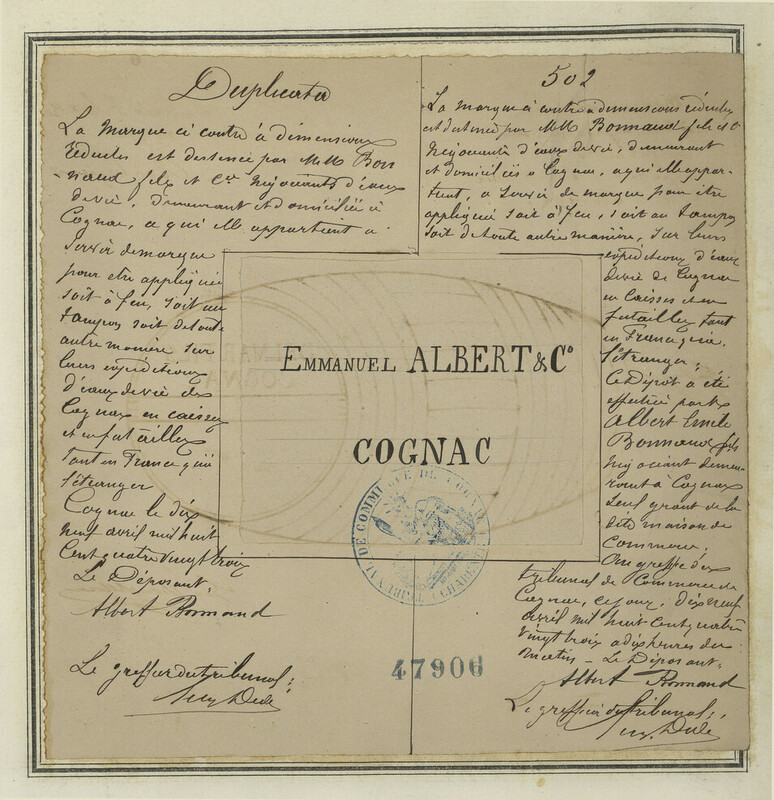 Duplicata
La marque ci contre à dimensions
réduites est destinée par M.M. Bon
naud fils et Cie Négociants d'eaux
de vie, demeurant et domiciliés à
Cognac, a qui elle appartient a
Servir de marque
pour etre appliquée
soit à feu, soit au
tampon soit de toute
autre manière sur
leurs expéditions
d'eaux de vie de
Cognac en caisses
et en futailles
tant en France qu'à
l'étranger
Cognac le dix
neuf avril mil huit
cent quatre vingt trois
Le Déposant,
Albert Bonnaud
Le greffier du tribunal;
502
La marque ci contre à dimensions réduites
est destinée par M.M. Bonnaud fils et Co
Négociants d'eaux de vie, demeurant
et domiciliés a Cognac, a qui elle appar-
tient, a servir de marque pour être
appliquée soit à feu, soit au tampon
soit de toute autre manière, sur leurs
expéditions d'eaux
de vie de Cognac
en caisses et en
futailles tant
en France qu'à
l'étranger;
Ce Dépôt a été
effectué par M.
Albert Emile
Bonnaud fils
négociant demeu-
rant à Cognac
seul gérant de la
dite maison de
commerce;
Au greffe du
tribunal de Commerce de
Cognac, ce jour, dix neuf
avril mil huit cent quatre
vingt trois a dix heures du
matin - Le Déposant.
Albert Bonnaud
Le greffier du tribunal;
EMMANUEL ALBERT & Co
COGNAC
DE COMMERCE DE COGNAC
CHARENTE
47906